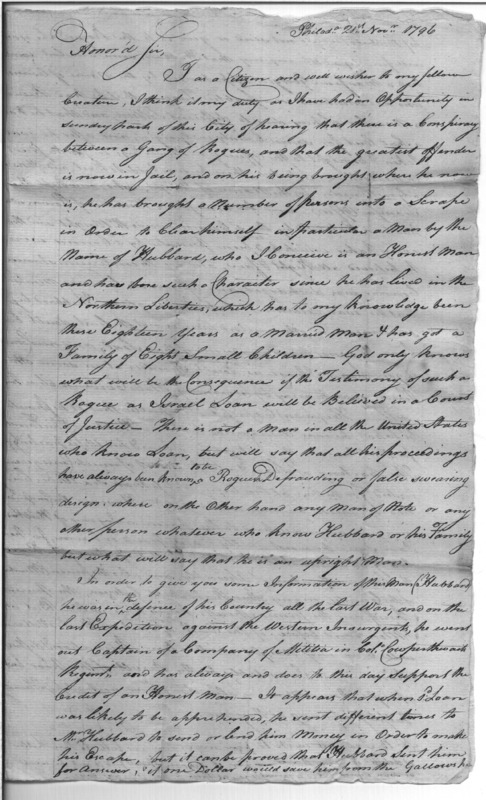 Philada. 21st Novr. 1796
Honor'd Sir,
I as a Citizen and well wisher to my fellow
Creature, I think it my duty as I have had an Opportunity in
sundry parts of this City of hearing that there is a Conspiracy
between a Gang of Rogues, and that the greatest offender
is now in Jail, and on his being brought where he now
is, he has brought a Number of persons into a Scrape
in Order to Clear himself in particular a Man by the
Name of Hubbard, who I Conceive is an Honest Man
and has bore such a Character since he has lived in the
Northern Liberties, which has to my knowledge been
these Eighteen Years as a Married Man & has got a
Family of Eight Small Children — God only knows
what will be the Consequence if the Testimony of such a
Rogue as Israel Loan will be Believed in a Court
of Justice — There is not a Man in all the United States
who know Loan, but will say that all his proceedings
have always been known to be a Rogue, Defrauding or false swearing
design: where on the Other hand any Man of Note or any
other person whatever who know Hubbard or his Family
but what will say that he is an upright Man.
In order to give you some Information of this Man (Hubbard
he was in the defence of his Country all the last War, and on the
last Expedition against the Western Insurgents, he went
out Captain of a Company of Militia in Colo. Cowperthwaits
Regimt. and has always and does to this day support the
Credit of an Honest Man — It appears that when sd. Loan
was likely to be apprehended, he sent different times to
Mr. Hubbard to send or lend him Money in Order to make
his Escape, but it can be proved that Hubbard sent him
for Answer, if one Dollar would save him from the Gallows he